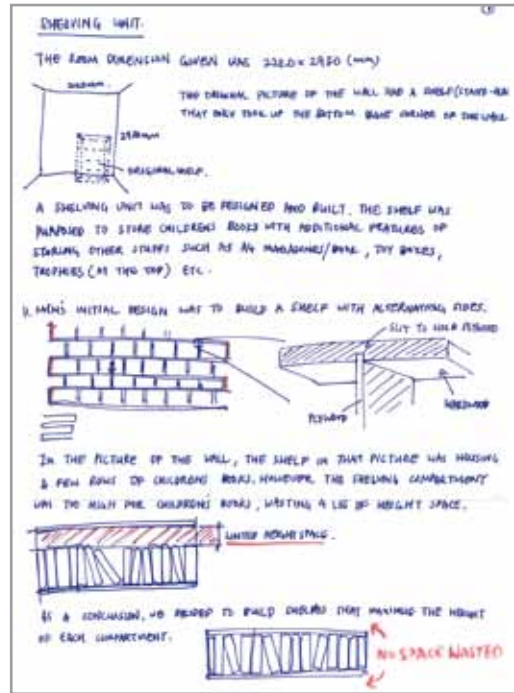 SHELVING UNIT.
THE ROOM DIMENSION GIVEN WAS 2220 x 2950 (mm)
THE ORIGINAL PICTURE OF THE WALL HAD A SHELF
THAT ONLY TOOK UP THE BOTTOM RIGHT CORNER OF THE WALL
ORIGINAL SHELF.
A SHELVING UNIT WAS TO BE DESIGNED AND BUILT. THE SHELF WAS
PURPOSED TO STORE CHILDRENS BOOKS WITH ADDITIONAL FEATURES OF
STORING OTHER STUFFS SUCH AS A4 MAGAZINES/BOOK, TOY BOXES,
TROPHIES (AT THE TOP) ETC.
INITIAL DESIGN WAS TO BUILD A SHELF WITH ALTERNATING SIDES.
SLIT TO HOLD PLYWOOD
PLYWOOD
HARDWOOD
IN THE PICTURE OF THE WALL, THE SHELF IN THAT PICTURE WAS HOUSING
A FEW ROWS OF CHILDRENS BOOKS. HOWEVER THE SHELVING COMPARTMENT
WAS TOO HIGH FOR CHILDRENS BOOKS, WASTING A LOT OF HEIGHT SPACE.
WASTED HEIGHT SPACE.
AS A CONCLUSION, WE DECIDED TO BUILD SHELVES THAT MAXIMISE THE HEIGHT
OF EACH COMPARTMENT.
NO SPACE WASTED